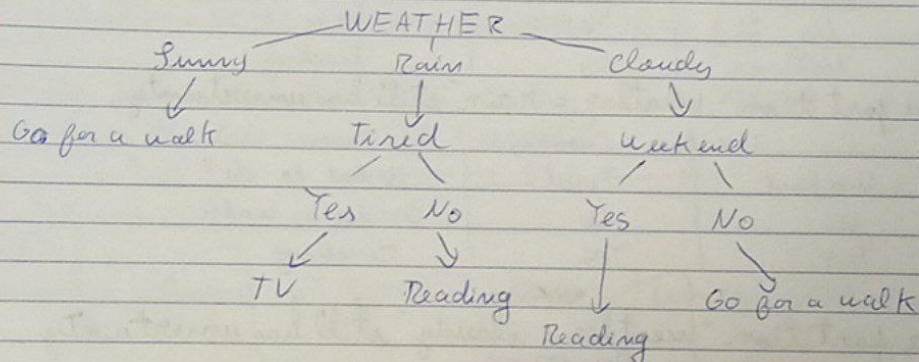 WEATHER
Sunny Rain Cloudy
Go for a walk Tired Weekend
Yes No Yes No
TV Reading Go for a walk
Reading